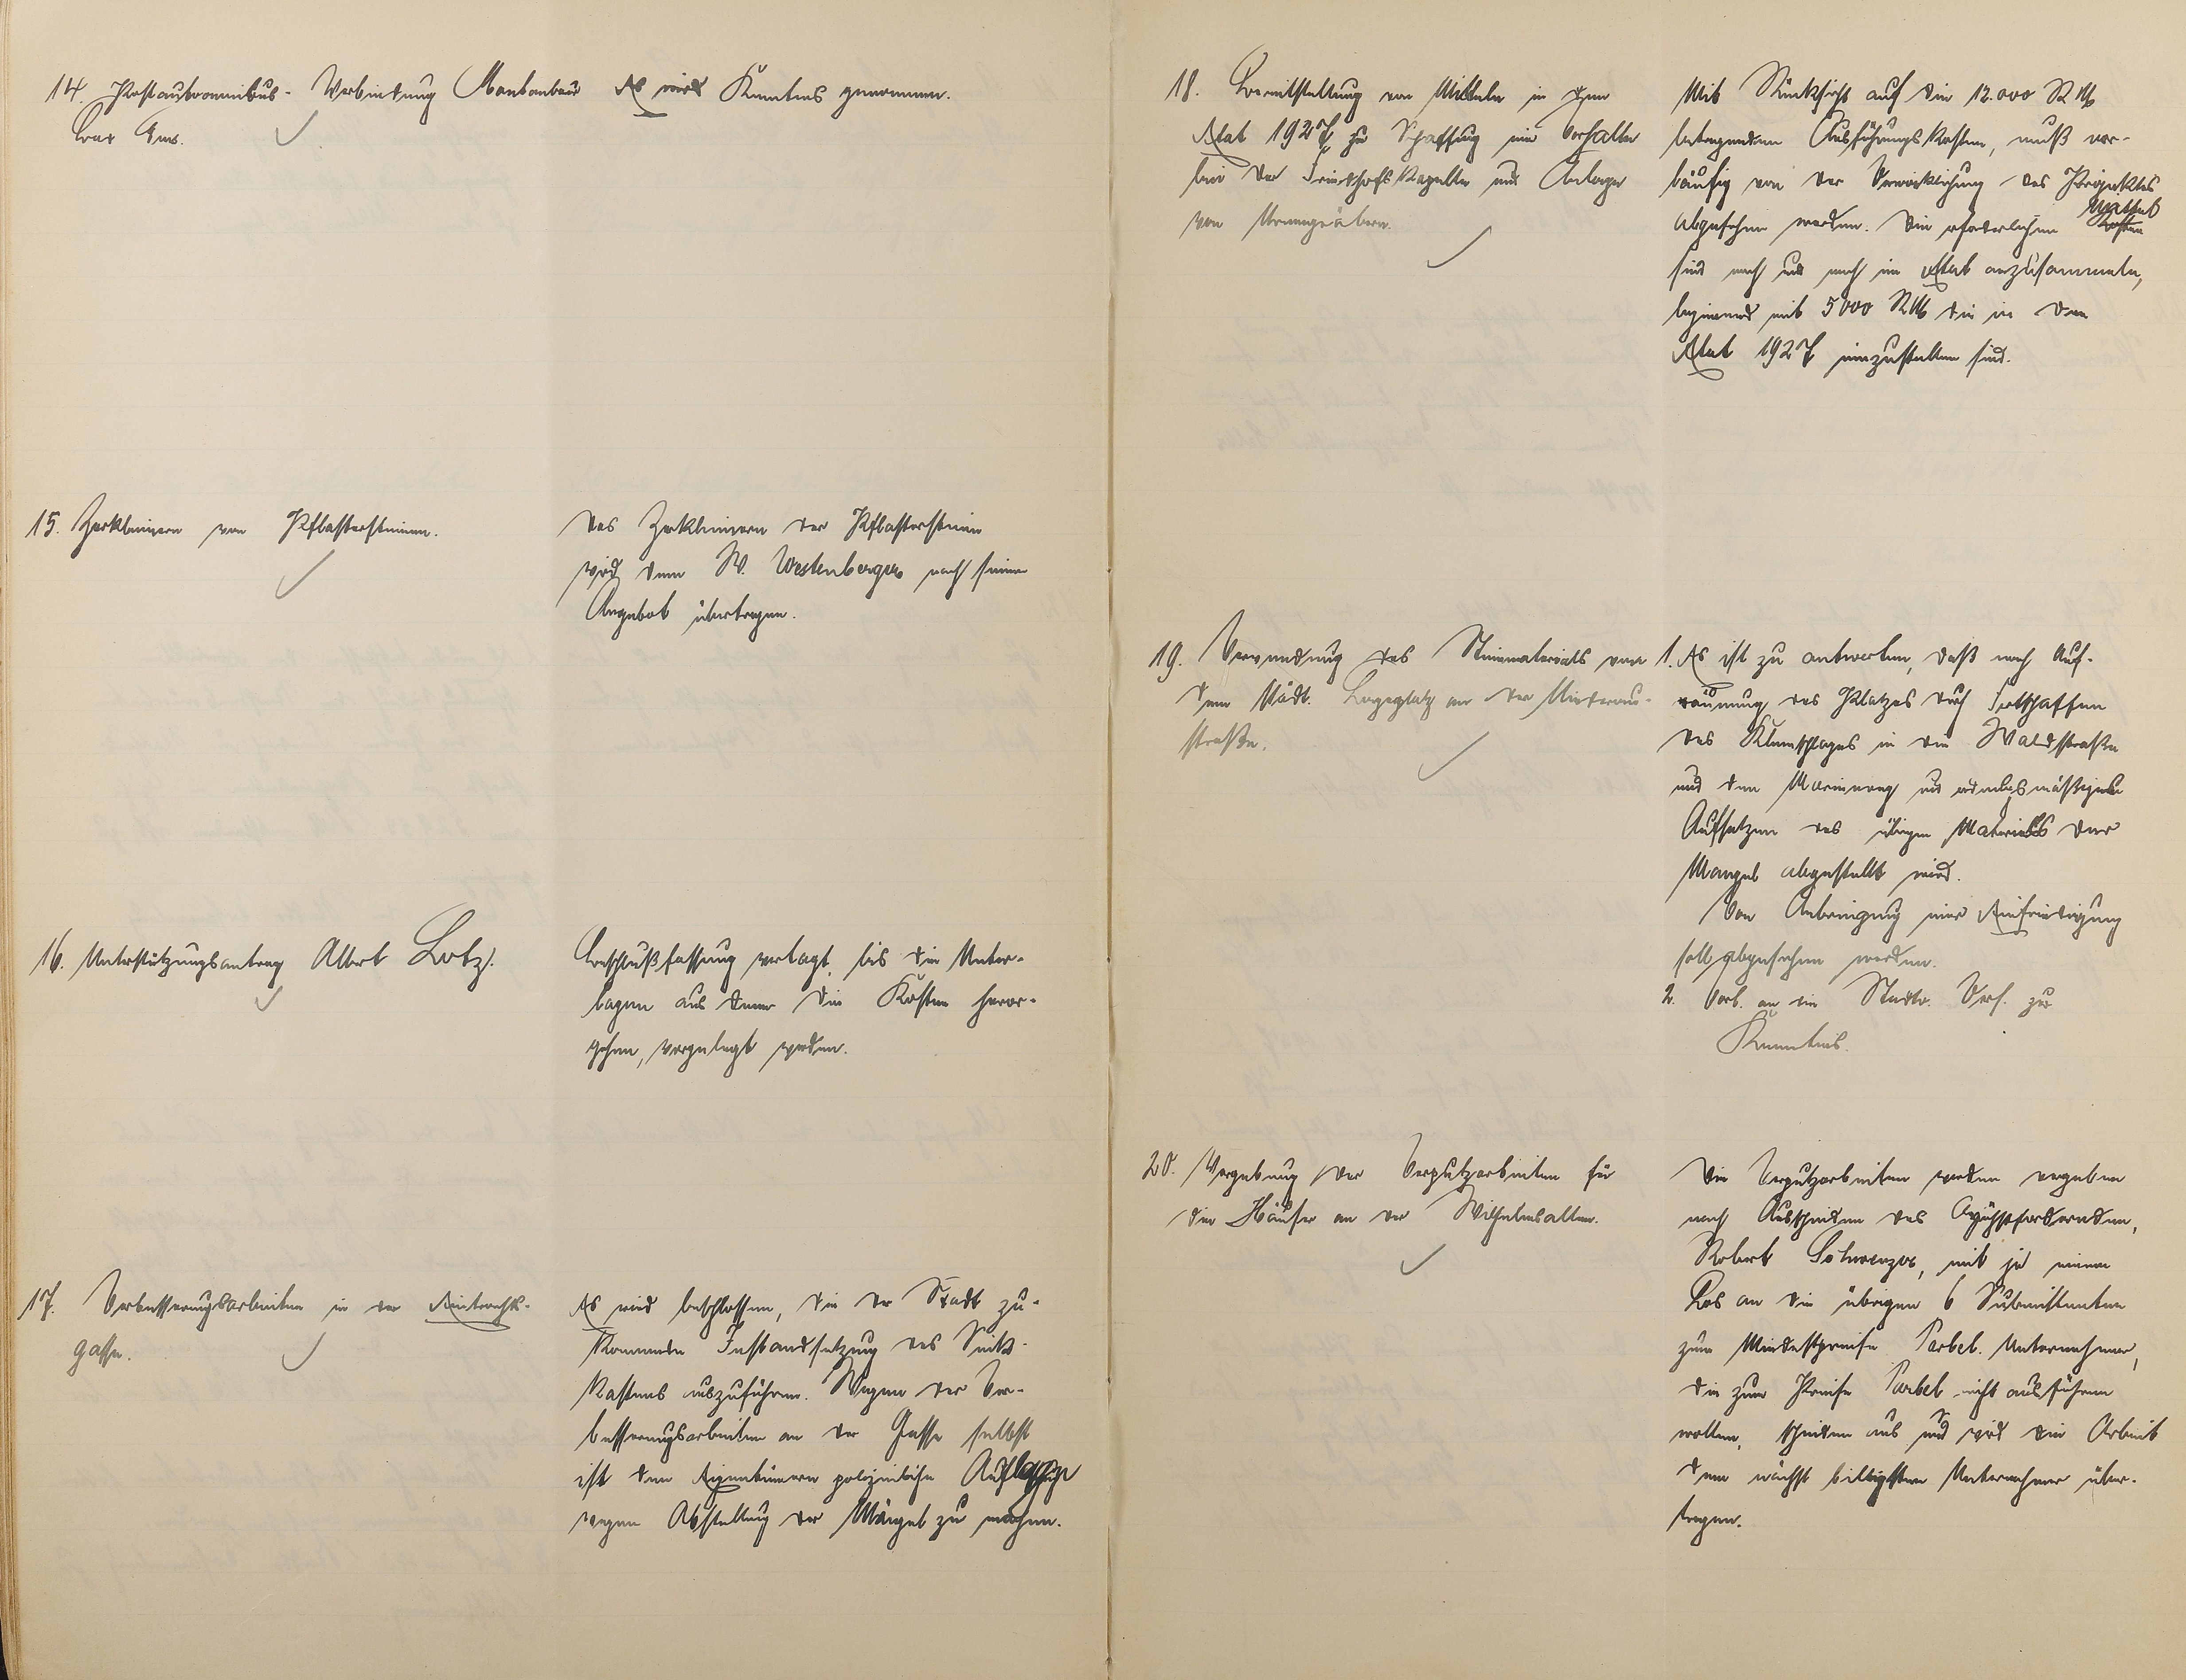 14. Postautoomnibus-Verbindung Montabaur
Bad Ems.
Es wird Kenntnis genommen.
15. Zerkleinern von Pflastersteinen.
Das Zerkleinern der Pflastersteine
wird dem W. Westenberger nach seinem
Angebot übertragen.
16. Unterstützungsantrag Albert Lotz.
Beschlußfassung vertagt, bis die Unter-
lagen aus denen die Kosten hervor-
gehen, vorgelegt werden.
17. Verbesserungsarbeiten in der Eintrachts-
gasse.
Es wird beschlossen, die der Stadt zu-
kommende Instandsetzung des Sink-
kastens auszuführen. Wegen der Ver-
besserungsarbeiten an der Gasse selbst
ist den Eigentümern polizeiliche Auflage
wegen Abstellung der Mängel zu machen.
18. Bereitstellung von Mitteln in dem
Etat 1927 zur Schaffung einer Vorhalle
bei der Friedhofskapelle und Anlage
von Urnengräbern.
Mit Rücksicht auf die 12.000 RM
betragenden Ausführungskosten, muß vor-
läufig von der Verwirklichung des Projektes
abgesehen werden. Die erforderlichen Mittel
sind nach und nach im Etat anzusammeln,
beginnend mit 5000 RM die in den
Etat 1927 einzustellen sind.
19. Verwendung des Steinmaterials von
dem städt. Lagerplatz an der Niederau-
straße.
1. Es ist zu antworten, daß nach Auf-
räumung des Platzes durch Fortschaffen
des Kleinschlages in die Waldstraße
und den und ordnungsmäßiges
Aufsetzen des übrigen Materials der
Mangel abgestellt wird.
Von Anbringung einer Einfriedigung
soll abgesehen werden.
2. Vorl. an die Stadtv. Vers. zur
Kenntnis.
20. Vergebung der Verputzarbeiten für
die Häuser an der Wilhelmsallee.
Die Verputzarbeiten werden vergeben
nach Ausscheiden des Höchstfordernden,
Robert Schwenzer, mit je einem
Los an die übrigen 6 Submittenten
zum Mindestpreise Parbel. Unternehmer,
die zum Preise Parbel nicht ausführen
wollen, scheiden aus und wird die Arbeit
dem nächst billigsten Unternehmer über-
tragen.